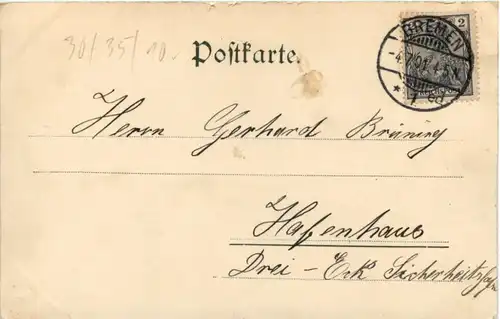 30/35/10.
Postkarte.
2
BREMEN
Herrn Gerhard Brüning
Hafenhaus
Drei-Eck Sicherheitshafen